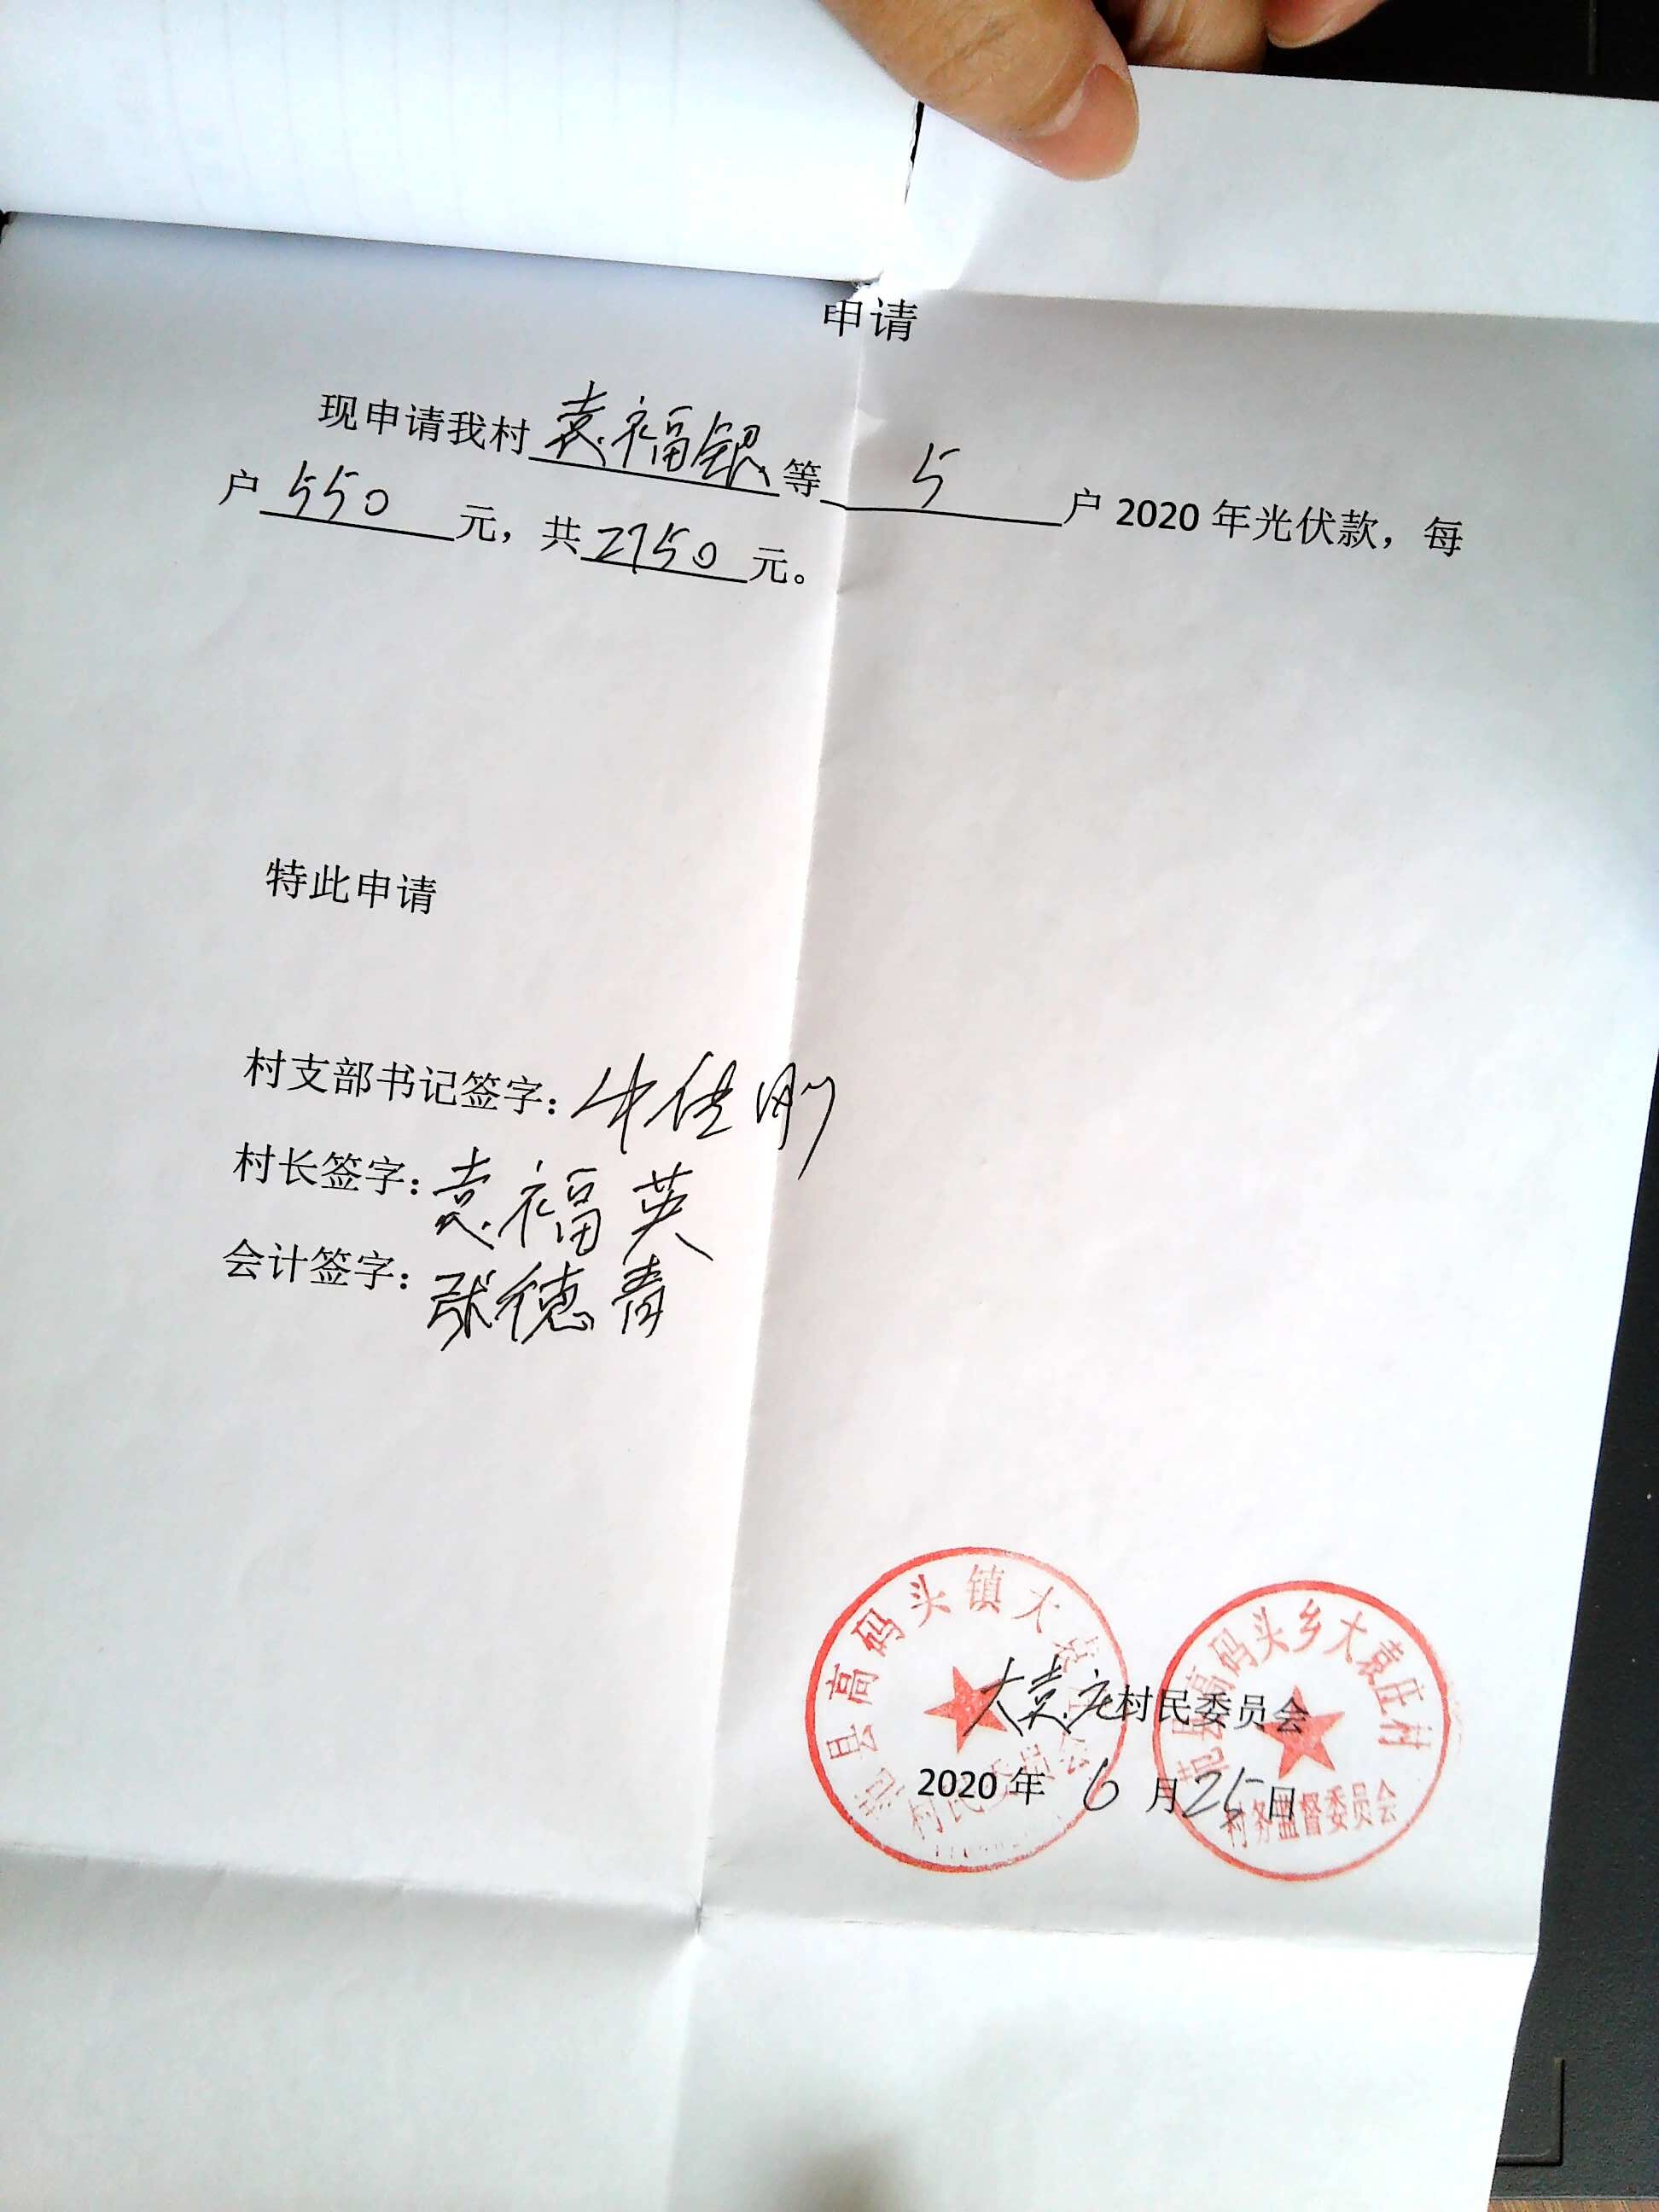 申请
现申请我村袁福银等5户2020年光伏款，每
户550元，共2750元。
特此申请
村支部书记签字：牛佳刚
村长签字：袁福英
会计签字：张德青
大袁庄村民委员会
2020年6月25日
范县高码头镇大袁庄
村民委员会
范县高码头乡大袁庄村
村务监督委员会